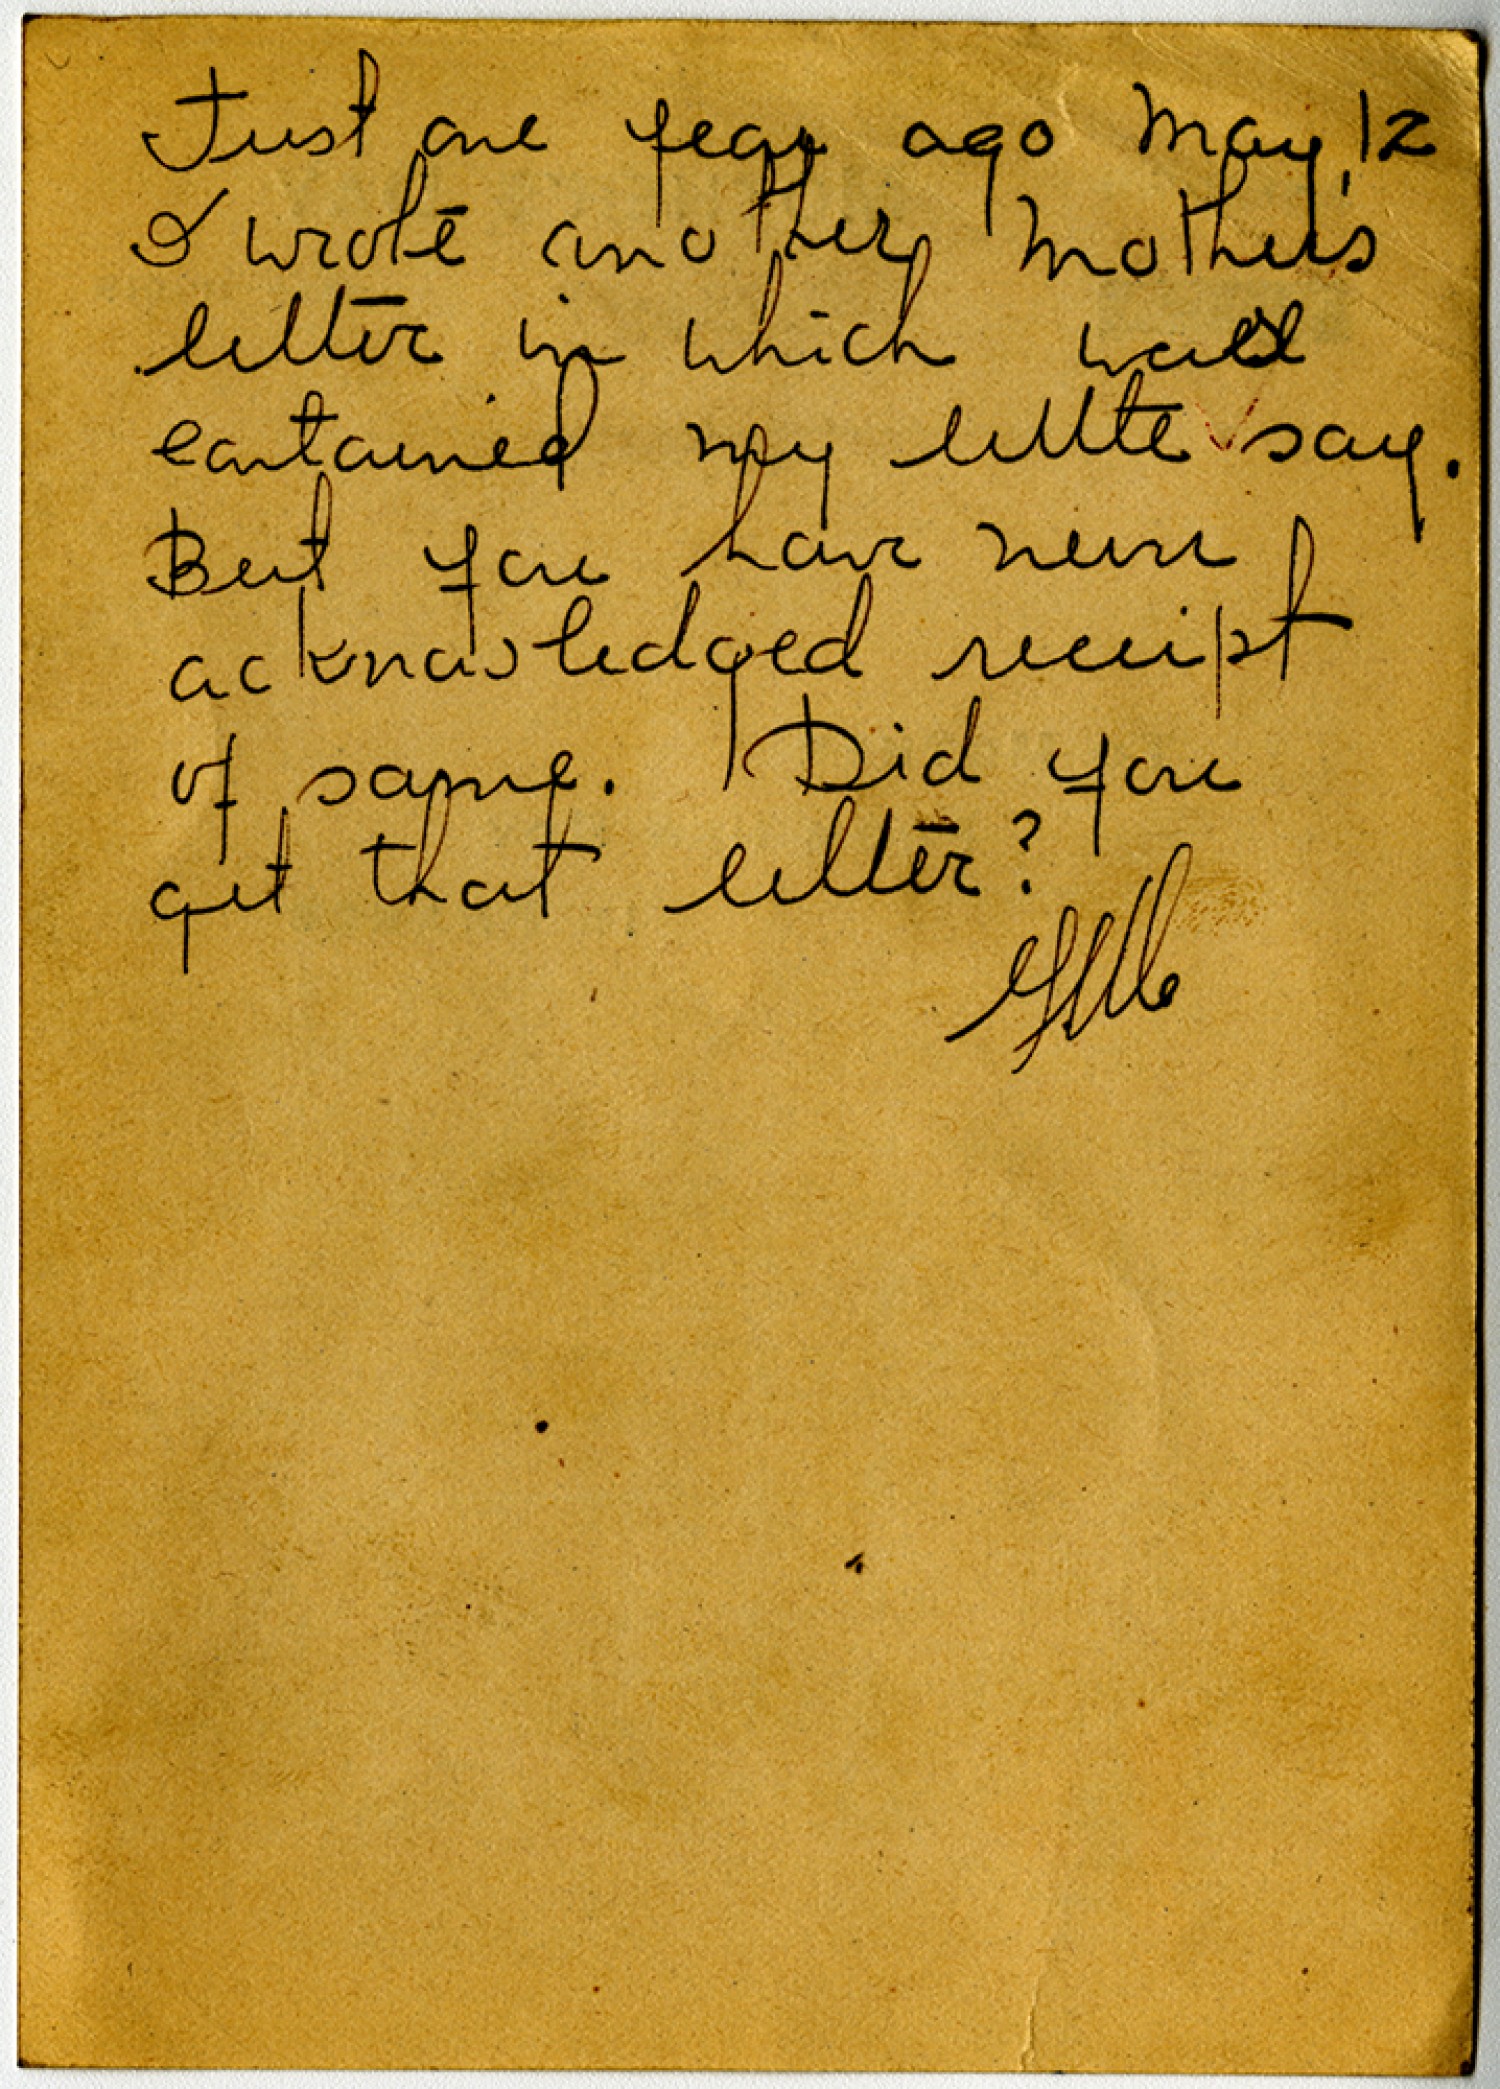 Just one year ago May 12
I wrote another Mother's
letter in which was
contained my little say.
But you have never
acknowledged receipt
of same. Did you
get that letter?